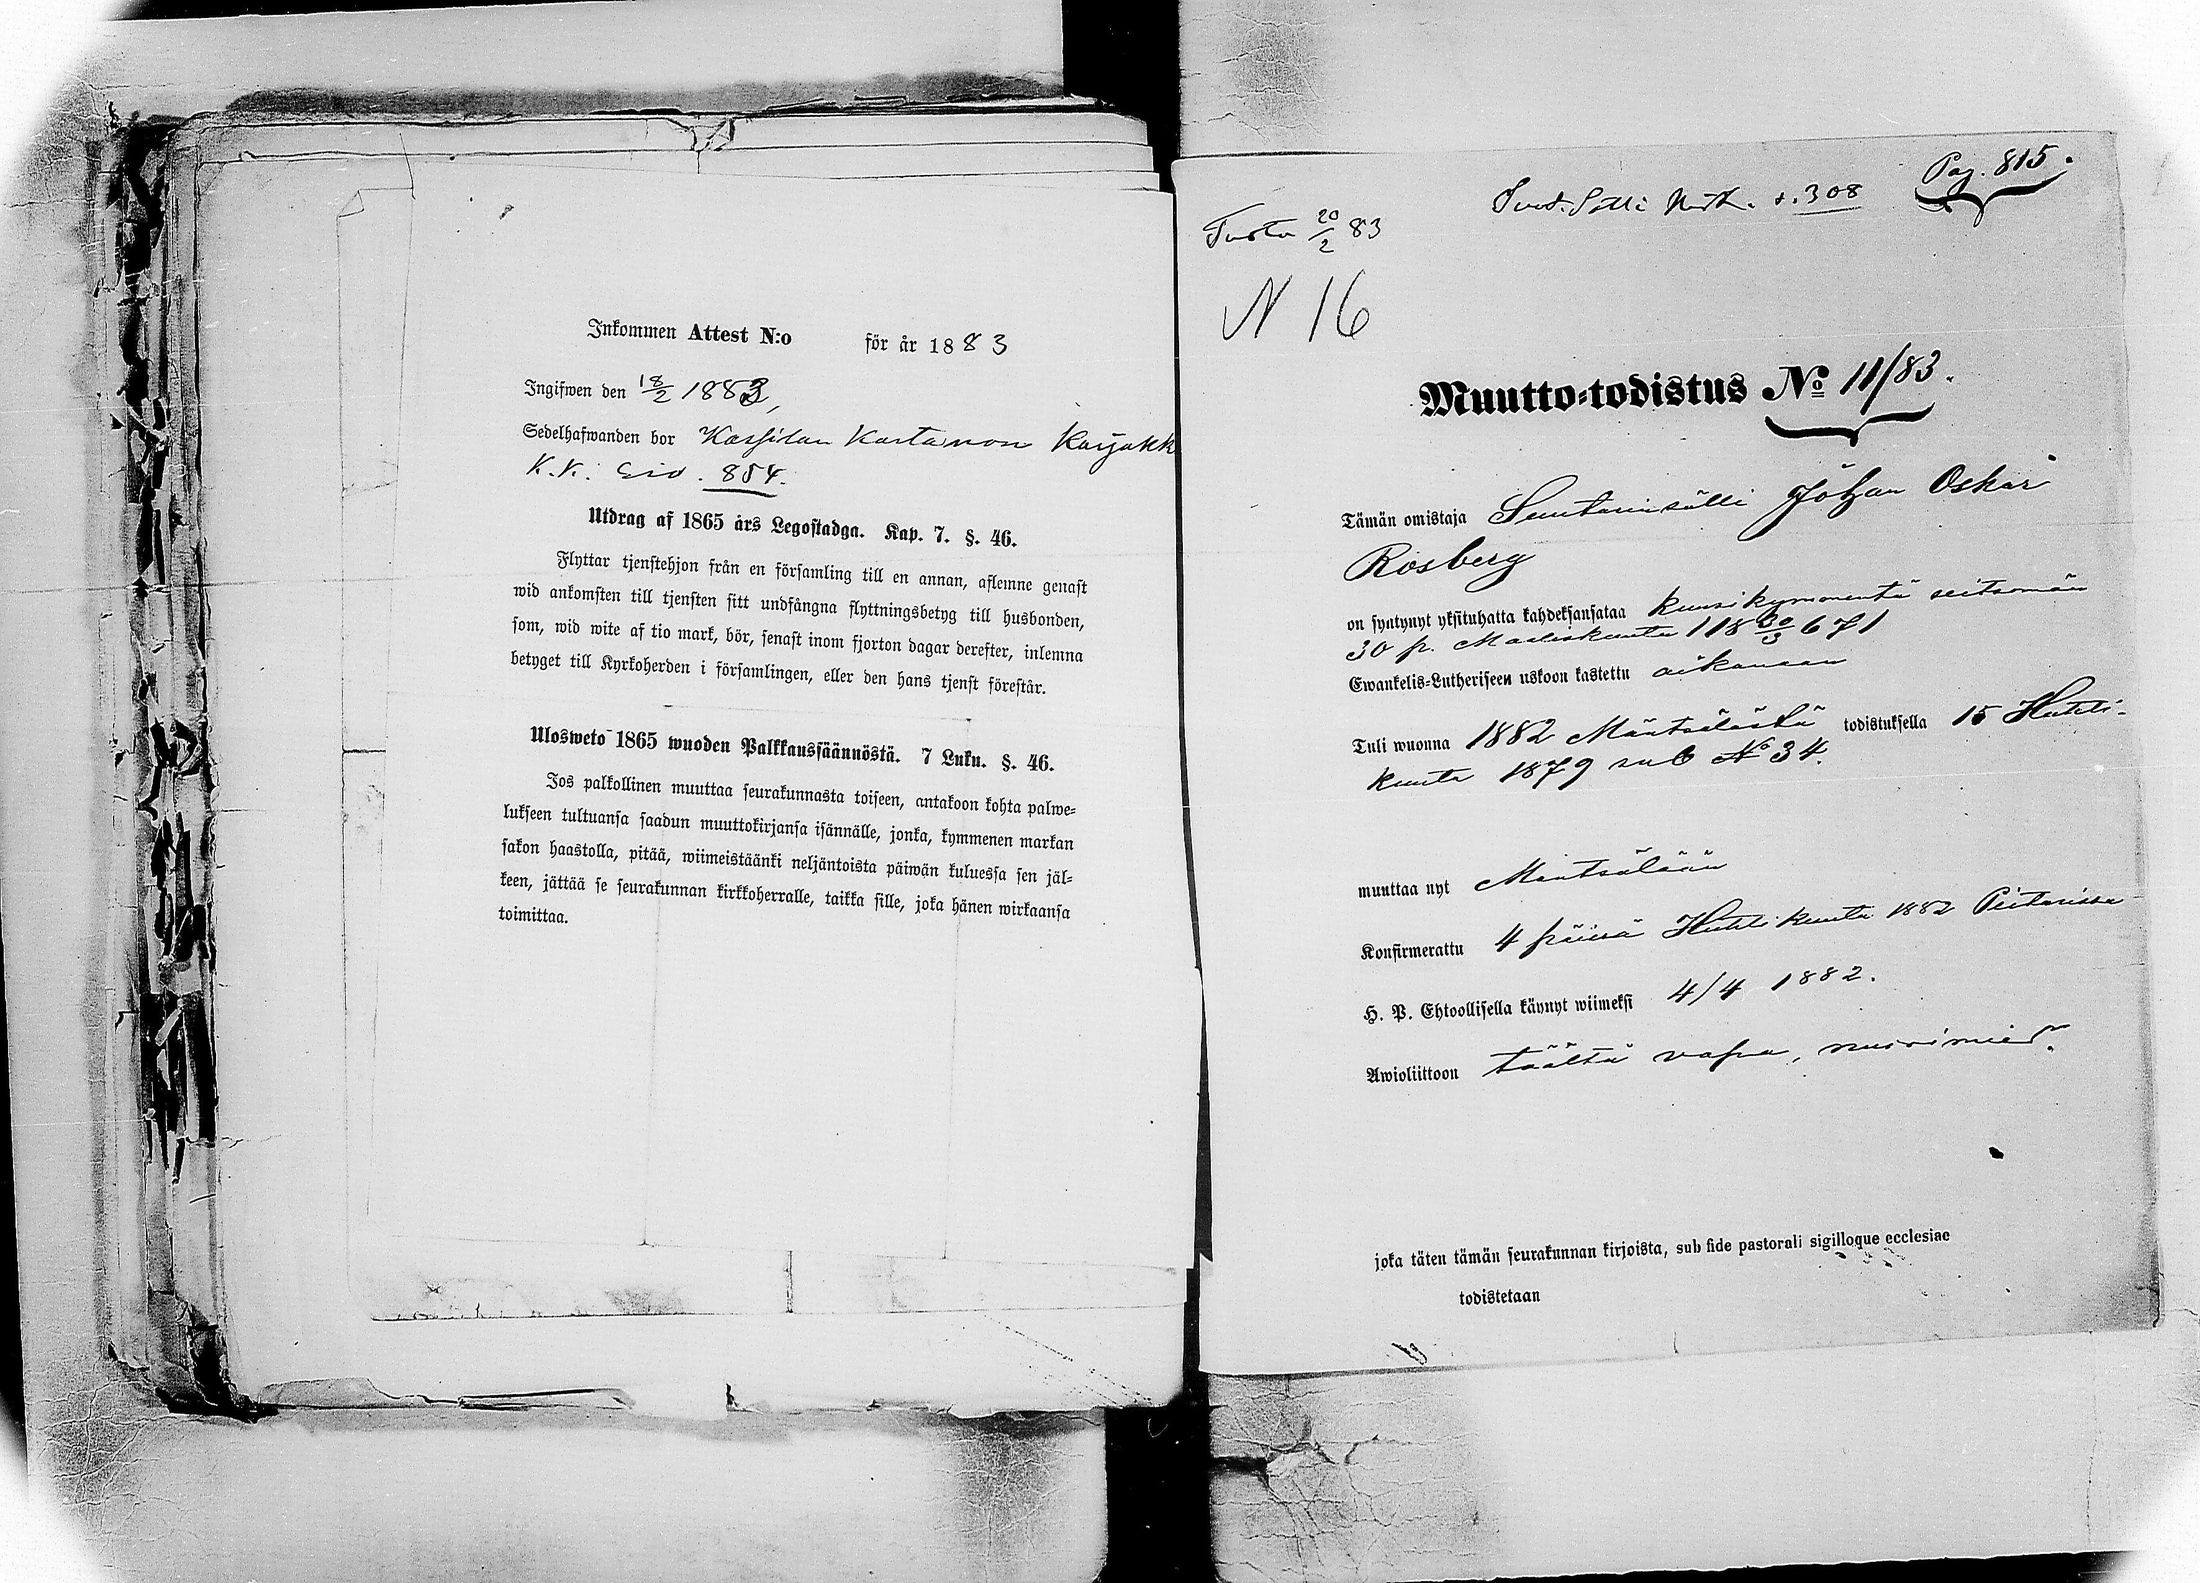 Inkommen Attest N:o för år 1883
Ingifwen den 18/2 1883,
Sedelhafwanden bor Kassilan Kartanon Karjakk
K.K. Siv. 854.
Utdrag af 1865 års Legostadga. Kap. 7. §. 46.
Flyttar tjenstehjon från en församling till en annan, aflemne genast
wid ankomsten till tjensten sitt undfångna flyttningsbetyg till husbonden,
som, wid wite af tio mark, bör, senast inom fjorton dagar derefter, inlemna
betyget till Kyrkoherden i församlingen, eller den hans tjenst förestår.
Ulosweto 1865 wuoden Palkkaussäännöstä. 7 Luku. §. 46.
Jos palkollinen muuttaa seurakunnasta toiseen, antakoon kohta palwe=
lukseen tultuansa saadun muuttokirjansa isännälle, jonka, kymmenen markan
sakon haastolla, pitää, wiimeistäänki neljäntoista päiwän kuluessa sen jäl=
keen, jättää se seurakunnan kirkkoherralle, taikka sille, joka hänen wirkaansa
toimittaa.
Pag. 815.
s. 308
20/2 83
N 16
Muutto=todistus No 11/83.
Tämän omistaja Suutarinsälli Johan Oskar
Rosberg
on syntynyt yksituhatta kahdeksansataa kuusikymmentä seitsemän
30 p. Maaliskuuta 118 30/3 671
Ewankelis=Lutheriseen uskoon kastettu aikanaan
Tuli wuonna 1882 Mäntsälästä todistuksella 15 Huhti-
kuuta 1879 sub No 34.
muuttaa nyt Mäntsälään
Konfirmerattu 4 päivä Huhtikuuta 1882 Pietarissa
H. P. Ehtoollisella käynyt wiimeksi 4/4 1882.
Awioliittoon täältä vapaa, nuorimies.
joka täten tämän seurakunnan kirjoista, sub fide pastorali sigilloque ecclesiae
todistetaan